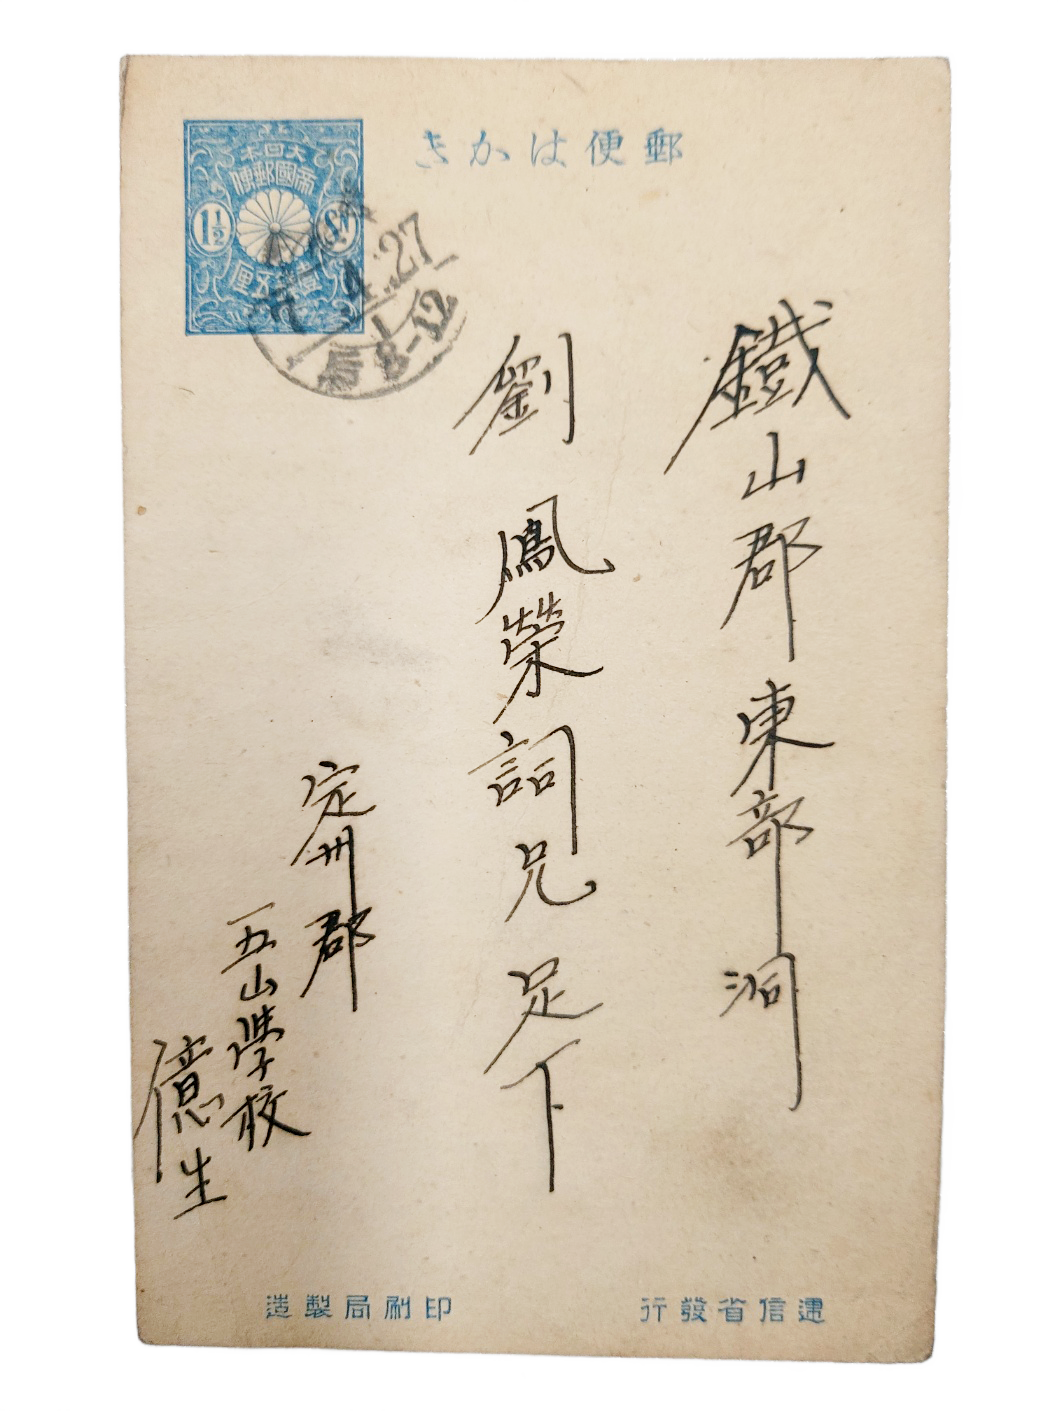 郵便はかき
大日本
帝國郵便
1½
壹錢五厘
4.27
后8-12
鐵山郡東部洞
劉鳳榮詞兄足下
定州郡
五山學校
億生
遞信省發行
印刷局製造